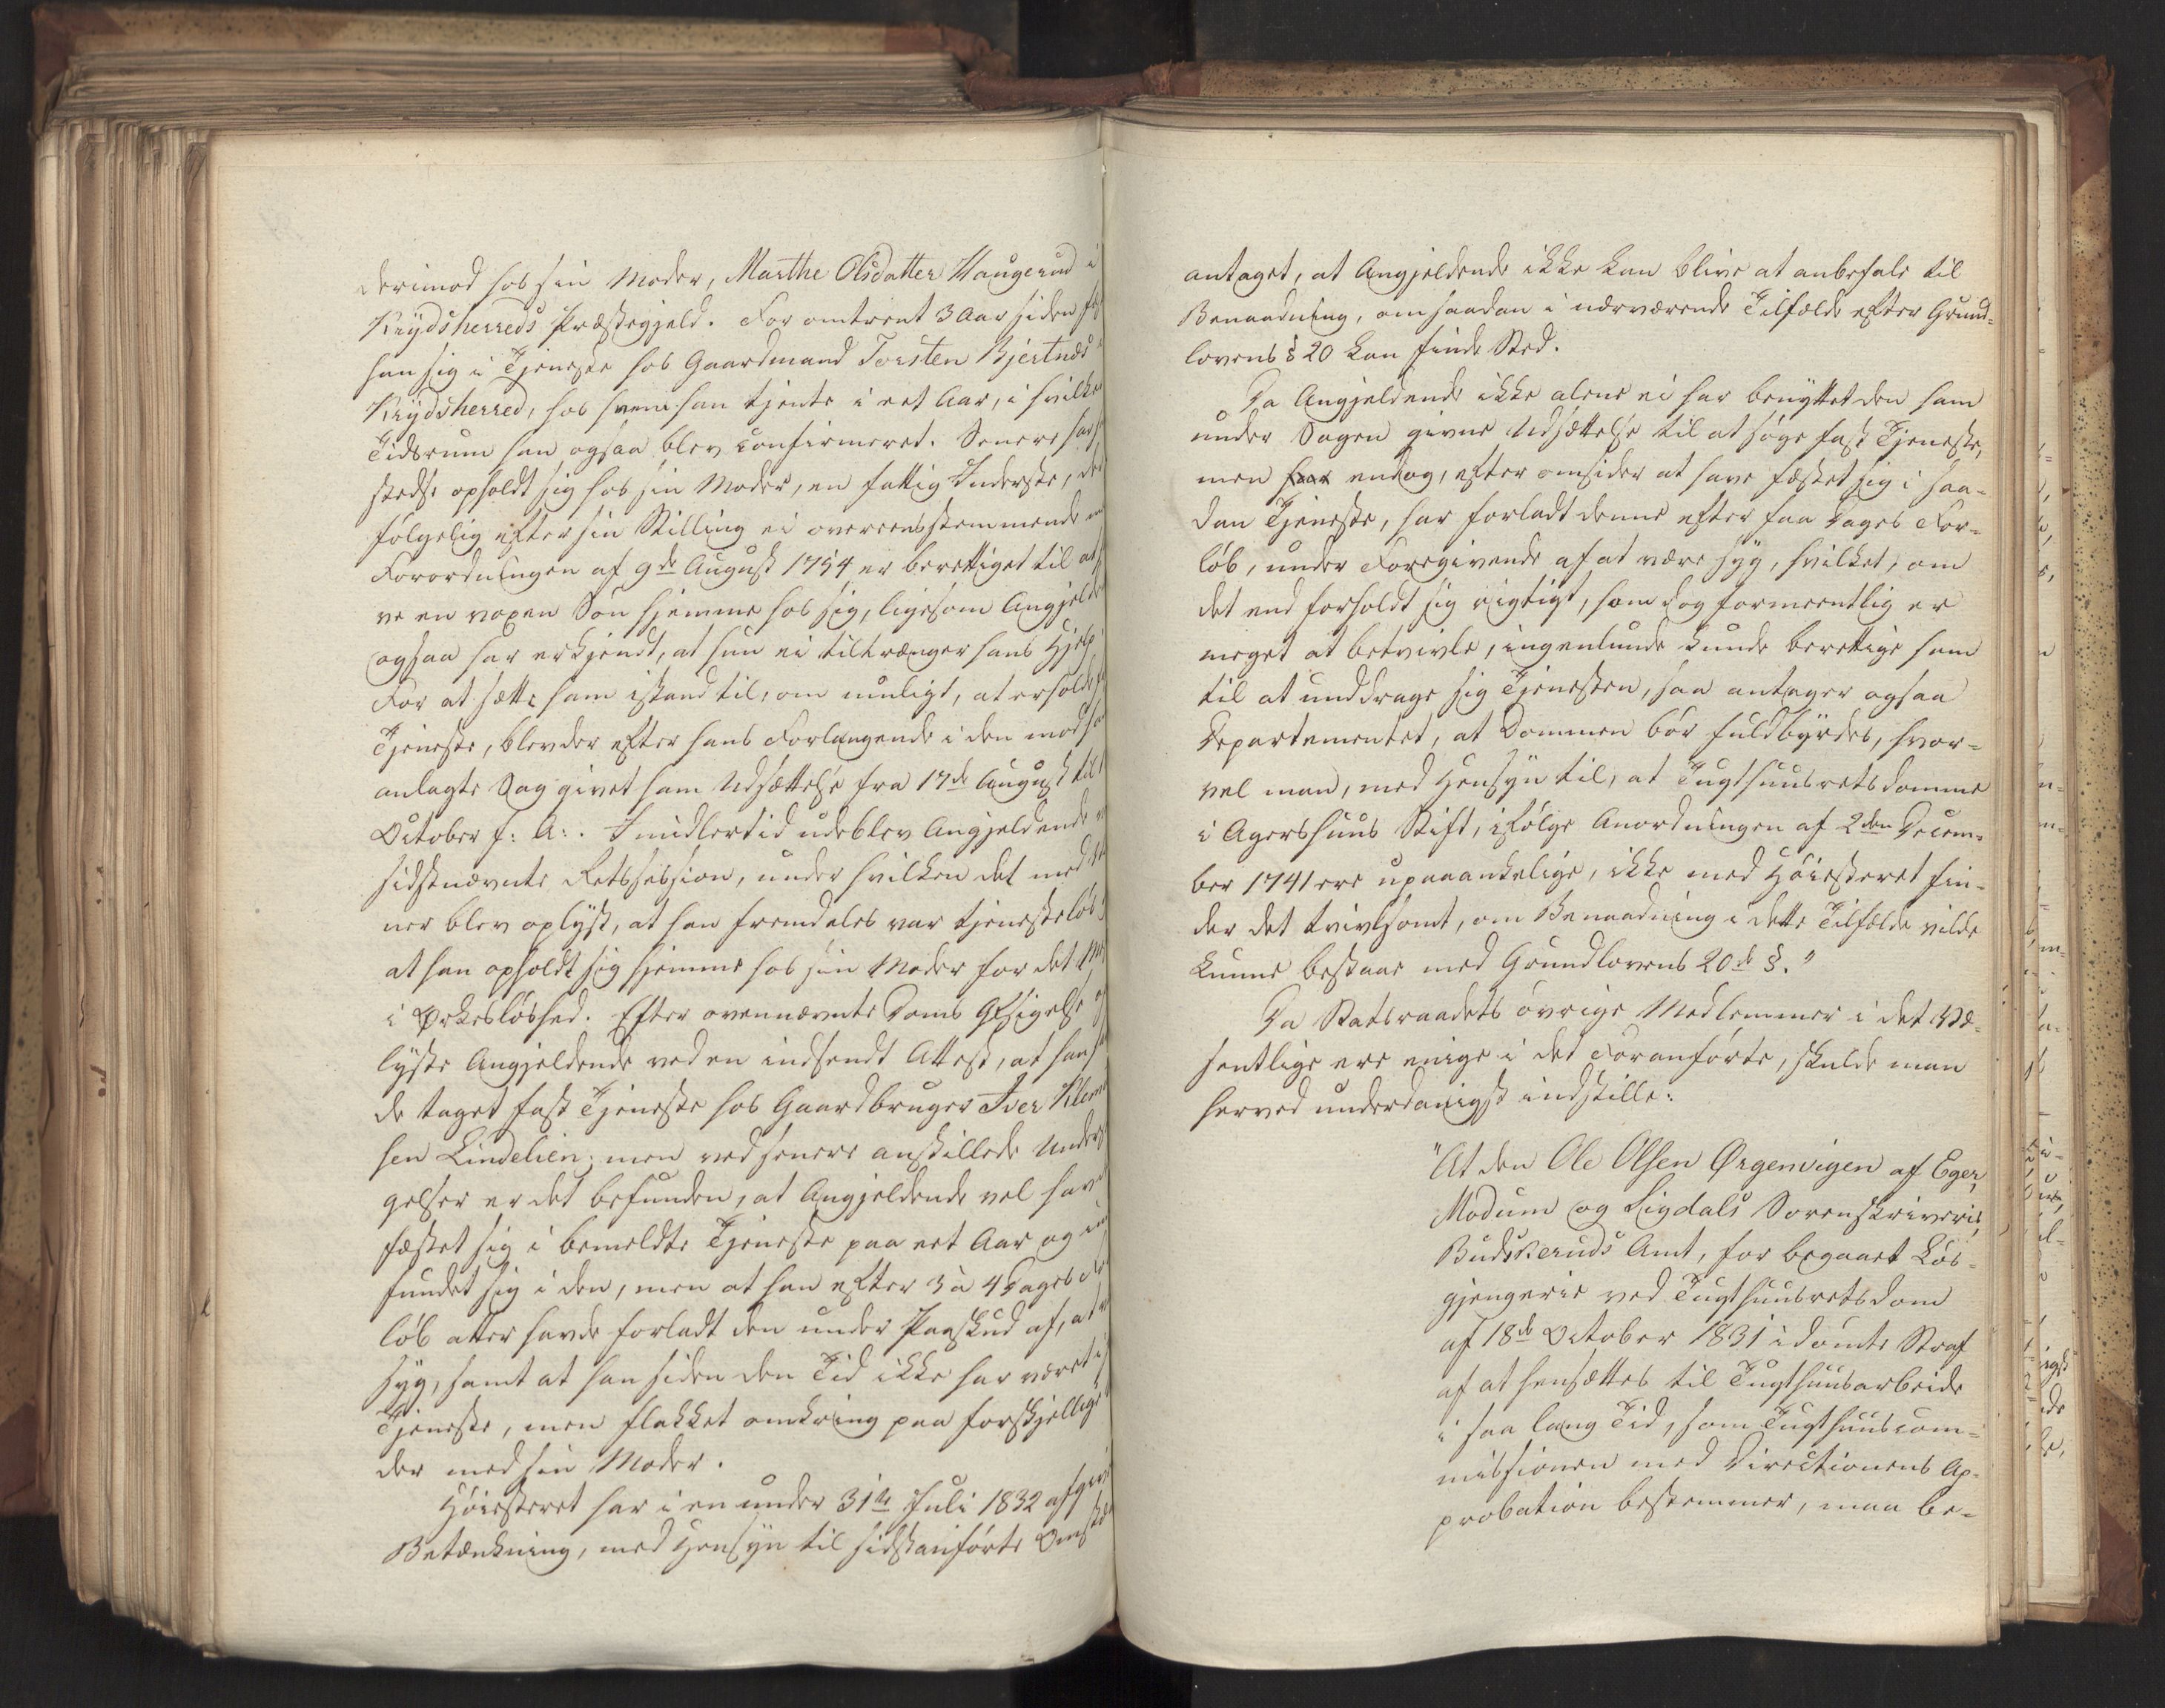 derimod hos sin Moder, Marthe Olsdatter Haugerud i
Krydsherreds Præstegjeld. For omtrent 3 Aar siden
han sig i Tjeneste hos Gaardmand Torsten Bjertnæs
Krydsherred, hos hvem han tjente i eet Aar, i hvilke
Tidsrum han ogsaa blev confirmeret. Senere har
stedse opholdt sig hos sin Moder, en fattig Inderste, der
følgelig efter sin Stilling ei overeensstemmende
Forordningen af 9de August 1754 er berettiget til at
ve en voxen Søn hjemme hos sig, ligesom Angjelde
ogsaa har erkjendt, at hun ei tiltrænger hans Hjelp.
For at sætte ham istand til, om muligt, at erholde
Tjeneste, blev der efter hans Forlangende i den mod ham
anlagte Sag givet ham Udsættelse fra 17de August til
October f: A:. Imidlertid udeblev Angjeldende
sidstnævnte Retssession, under hvilken det med
ner blev oplyst, at han fremdeles var tjenesteløs
at han opholdt sig hjemme hos sin Moder for det
i Ørkesløshed. Efter ovennævnte Doms Afsigelse
lyste Angjeldende ved en indsendt Attest, at han
de taget fast Tjeneste hos Gaardbruger Iver Klem
sen Lindelien; men ved senere anstillede Under
gelser er det befunden, at Angjeldende vel havde
fæstet sig i bemeldte Tjeneste paa eet Aar og
fundet sig i den, men at han efter 3 à 4 Dages
løb atter havde forladt den under Paaskud af, at
syg, samt at han siden den Tid ikke har været i
Tjeneste, men flakket omkring paa forskjellige
der med sin Moder.
Høiesteret har i en under 31te Juli 1832 afgiven
Betænkning, med Hensyn til sidstanførte Omstæn
antaget, at Angjeldende ikke kan blive at anbefale til
Benaadning, om saadan i nærværende Tilfælde efter Grund-
lovens § 20 kan finde Sted.
Da Angjeldende ikke alene ei har benyttet den ham
under Sagen givne Udsættelse til at søge fast Tjeneste,
men har endog, efter omsider at have fæstet sig i saa-
dan Tjeneste, har forladt denne efter faa Dages For-
løb, under Foregivende af at være syg, hvilket, om
det end forholdt sig rigtigt, som dog formeentlig er
meget at betvivle, ingenlunde kunde berettige ham
til at unddrage sig Tjenesten, saa antager ogsaa
Departementet, at Dommen bør fuldbyrdes, hvor-
vel man, med Hensyn til, at Tugthuusretsdomme
i Agershuus Stift, ifølge Anordningen af 2den Decem-
ber 1741 ere upaaankelige, ikke med Høiesteret fin-
der det tvivlsomt, om Benaadning i dette Tilfælde vilde
kunne bestaae med Grundlovens 20de §."
Da Statsraadets øvrige Medlemmer i det Væ-
sentlige ere enige i det Foranførte, skulde man
herved underdanigst indstille:
"At den Ole Olsen Ørgenvigen af Eger,
Modum og Sigdals Sorenskriverie,
Budskeruds Amt, for begaaet Løs-
gjengerie ved Tugthuusretsdom
af 18de October 1831 idømte Straf
af at hensættes til Tugthuusarbeide
i saa lang Tid, som Tugthuuscom-
missionen med Directionens Ap-
probation bestemmer, maa be-